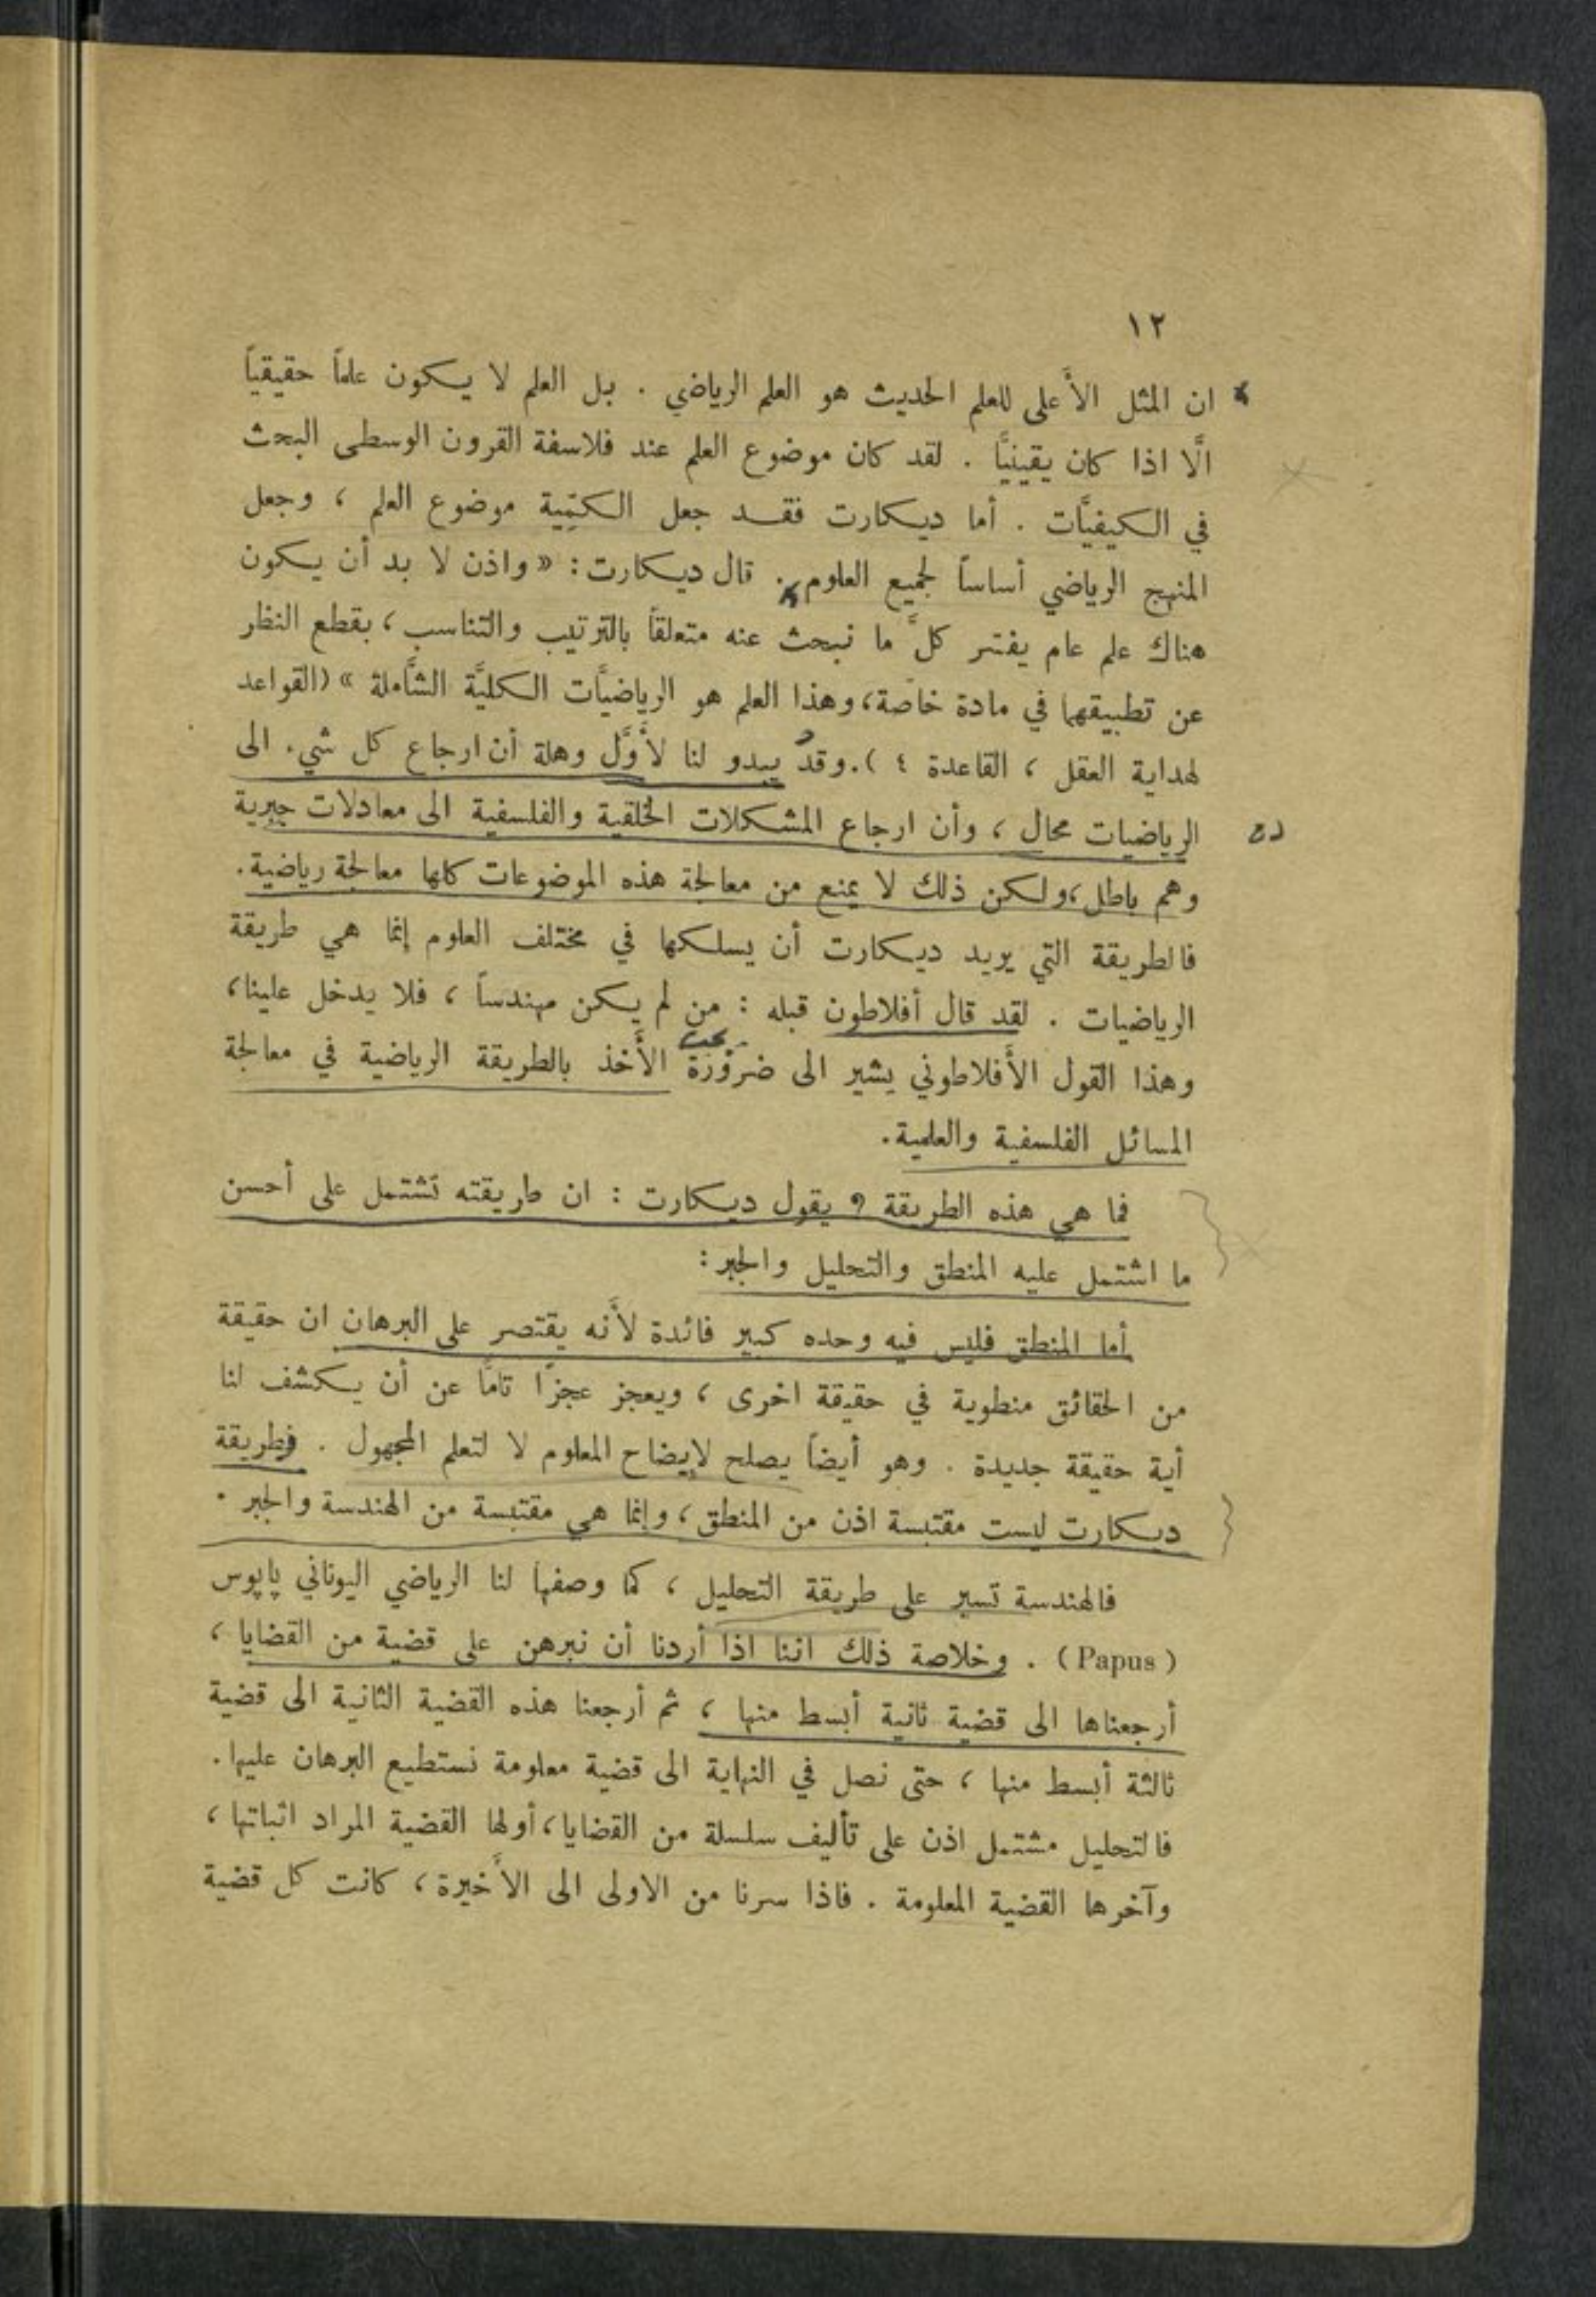 ١٢
ان المثل الأعلى للعلم الحديث هو العلم الرياضي . بل العلم لا يكون علماً حقيقياً
الَّا اذا كان يقينيًّا . لقد كان موضوع العلم عند فلاسفة القرون الوسطى البحث
في الكيفيَّات . أما ديكارت فقد جعل الكمّيّة موضوع العلم ، وجعل
المنهج الرياضي أساساً لجميع العلوم . قال ديكارت : « واذن لا بد أن يكون
هناك علم عام يفسّر كلَّ ما نبحث عنه متعلقاً بالترتيب والتناسب ، بقطع النظر
عن تطبيقهما في مادة خاصّة ، وهذا العلم هو الرياضيَّات الكليَّة الشَّاملة » (القواعد
لهداية العقل ، القاعدة ٤ ) . وقد يبدو لنا لأوَّل وهلة أن ارجاع كل شيء الى
الرياضيات محال ، وأن ارجاع المشكلات الخلقية والفلسفية الى معادلات جبرية
وهم باطل ، ولكن ذلك لا يمنع من معالجة هذه الموضوعات كلها معالجة رياضية .
فالطريقة التي يريد ديكارت أن يسلكها في مختلف العلوم إنما هي طريقة
الرياضيات . لقد قال أفلاطون قبله : من لم يكن مهندساً ، فلا يدخل علينا ،
وهذا القول الأفلاطوني يشير الى ضرورة الأخذ بالطريقة الرياضية في معالجة
المسائل الفلسفية والعلمية .
فما هي هذه الطريقة ؟ يقول ديكارت : ان طريقته تشتمل على أحسن
ما اشتمل عليه المنطق والتحليل والجبر :
أما المنطق فليس فيه وحده كبير فائدة لأنه يقتصر على البرهان ان حقيقة
من الحقائق منطوية في حقيقة اخرى ، ويعجز عجزًا تامًّا عن أن يكشف لنا
أية حقيقة جديدة . وهو أيضاً يصلح لإيضاح المعلوم لا لتعلم المجهول . فطريقة
ديكارت ليست مقتبسة اذن من المنطق ، وإنما هي مقتبسة من الهندسة والجبر .
فالهندسة تسير على طريقة التحليل ، كما وصفها لنا الرياضي اليوناني پاپوس
(Papus) . وخلاصة ذلك اننا اذا أردنا أن نبرهن على قضية من القضايا ،
أرجعناها الى قضية ثانية أبسط منها ، ثم أرجعنا هذه القضية الثانية الى قضية
ثالثة أبسط منها ، حتى نصل في النهاية الى قضية معلومة نستطيع البرهان عليها .
فالتحليل مشتمل اذن على تأليف سلسلة من القضايا ، أولها القضية المراد اثباتها ،
وآخرها القضية المعلومة . فاذا سرنا من الاولى الى الأخيرة ، كانت كل قضية